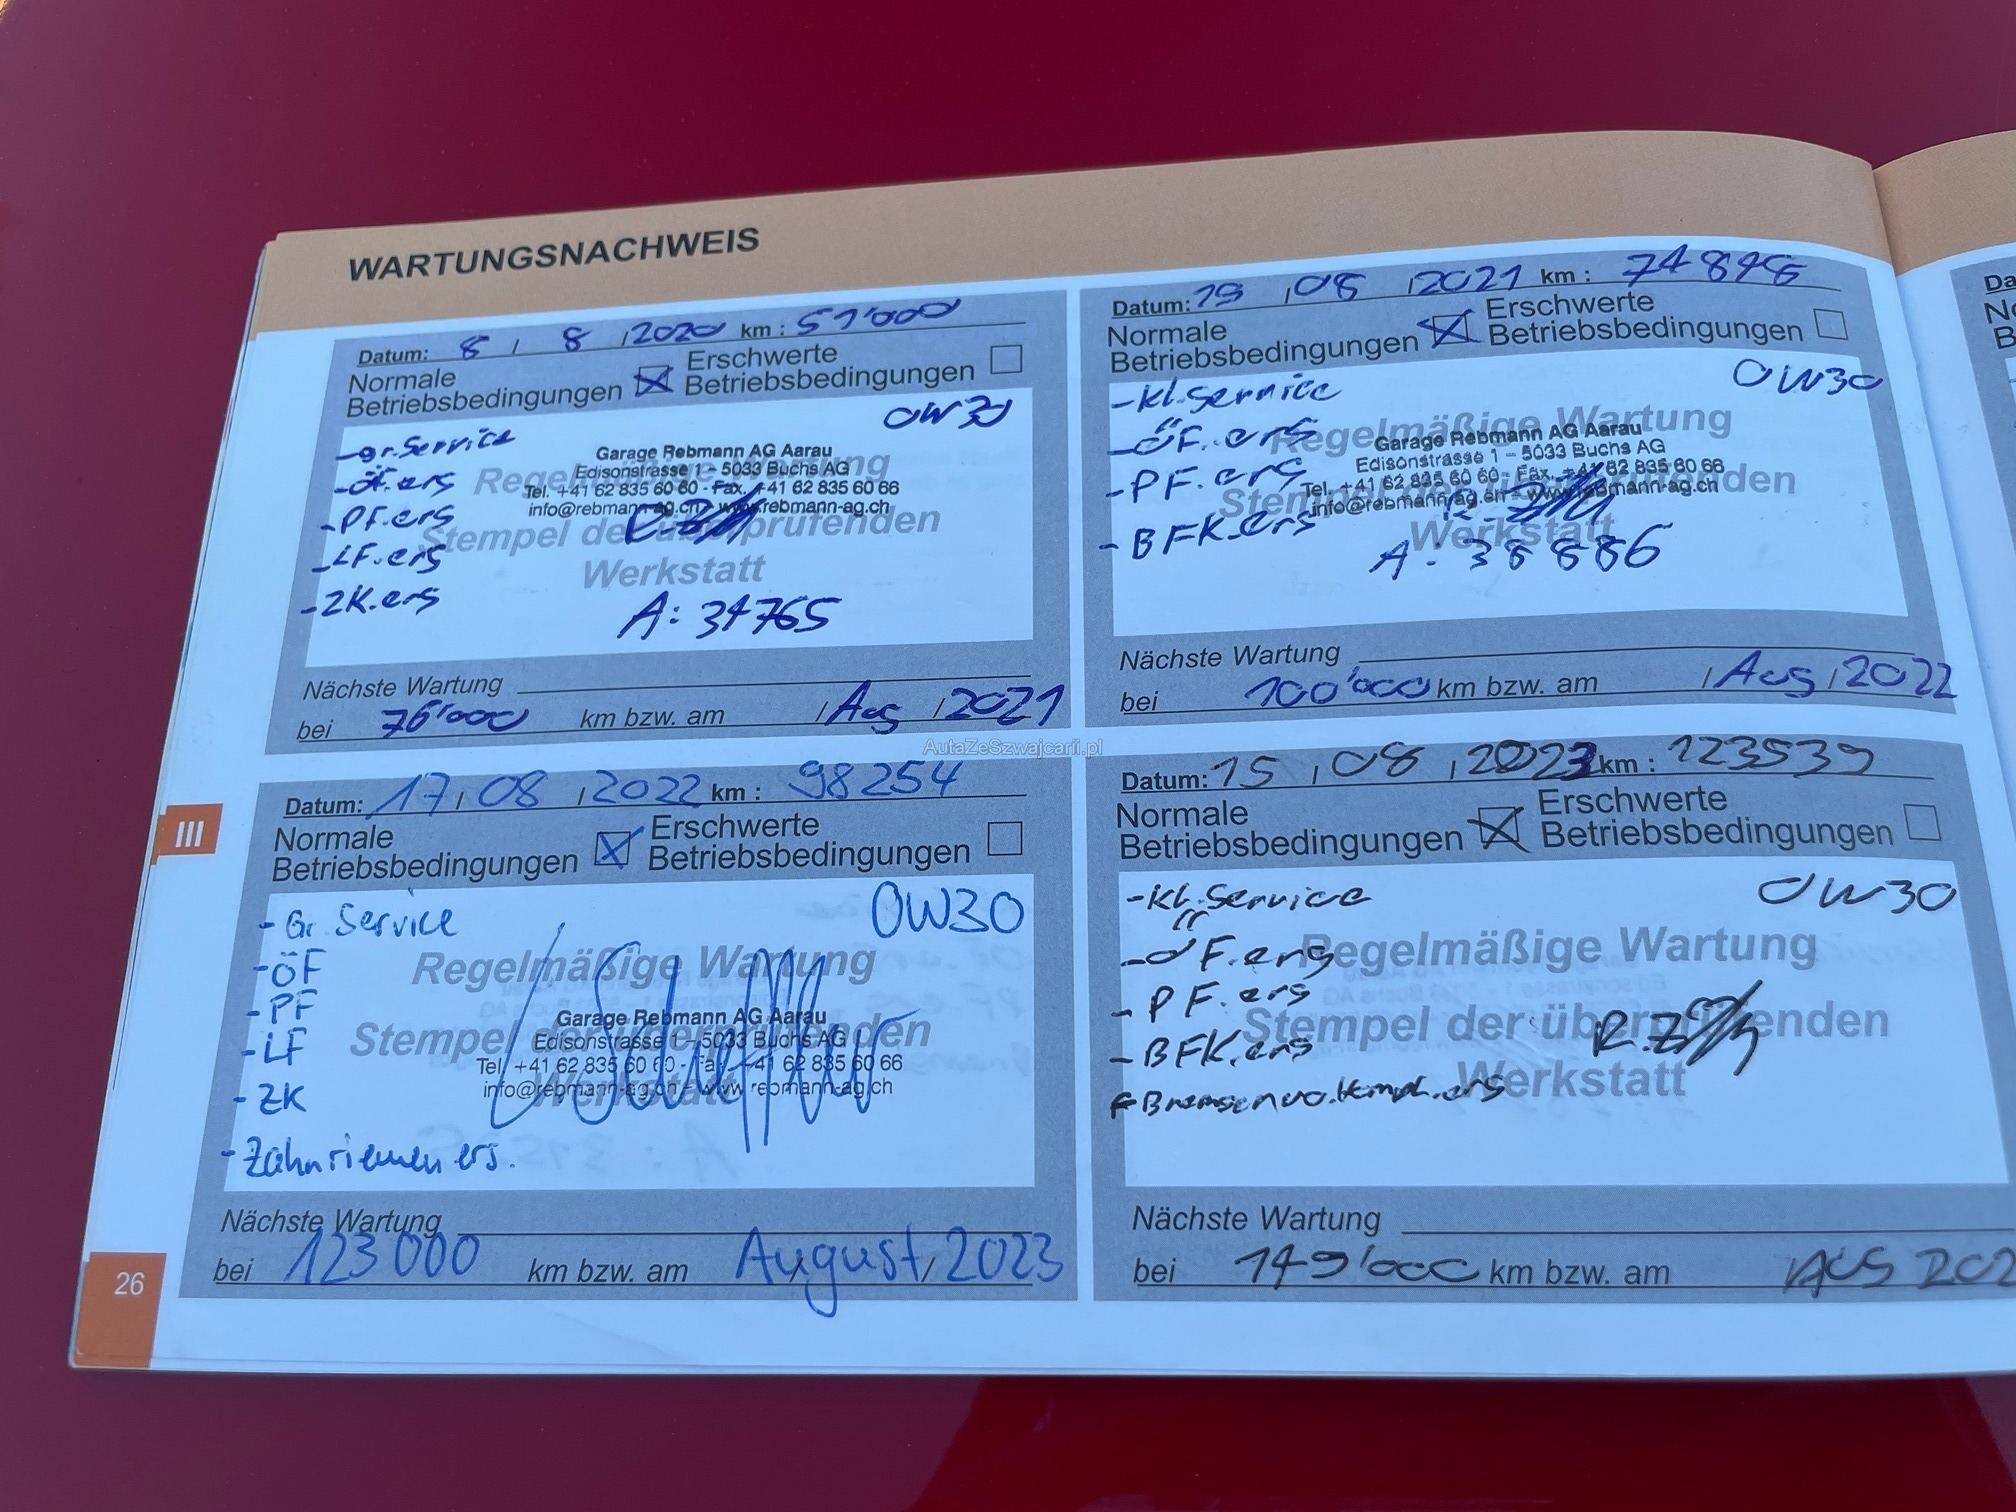 WARTUNGSNACHWEIS
Datum: 8 / 8 / 2020 km : 51'000
Normale
Betriebsbedingungen
Erschwerte
Betriebsbedingungen
- gr. Service
0W30
- ÖF. ers
- PF. ers
- LF. ers
- ZK. ers
Regelmäßige Wartung
Stempel der überprüfenden
Werkstatt
Garage Rebmann AG Aarau
Edisonstrasse 1 – 5033 Buchs AG
Tel. +41 62 835 60 60 - Fax. +41 62 835 60 66
info@rebmann-ag.ch - www.rebmann-ag.ch
A: 34765
Nächste Wartung
bei 76'000 km bzw. am / Aug / 2021
Datum: 19 / 08 / 2021 km :
Normale
Betriebsbedingungen
Erschwerte
Betriebsbedingungen
- kl. Service
0W30
- ÖF. ers
- PF. ers
- BFK. ers
Regelmäßige Wartung
Stempel der überprüfenden
Werkstatt
Garage Rebmann AG Aarau
Edisonstrasse 1 – 5033 Buchs AG
Tel. +41 62 835 60 60 - Fax. +41 62 835 60 66
info@rebmann-ag.ch - www.rebmann-ag.ch
A: 38886
Nächste Wartung
bei 100'000 km bzw. am / Aug / 2022
AutaZeSzwajcarii.pl
Datum: 17 / 08 / 2022 km : 98254
Normale
Betriebsbedingungen
Erschwerte
Betriebsbedingungen
- Gr. Service
0W30
- ÖF
- PF
- LF
- ZK
- Zahnriemen ers.
Regelmäßige Wartung
Stempel der überprüfenden
Werkstatt
Garage Rebmann AG Aarau
Edisonstrasse 1 – 5033 Buchs AG
Tel. +41 62 835 60 60 - Fax. +41 62 835 60 66
info@rebmann-ag.ch - www.rebmann-ag.ch
Nächste Wartung
bei 123000 km bzw. am August / 2023
Datum: 15 / 08 / 2023 km : 123539
Normale
Betriebsbedingungen
Erschwerte
Betriebsbedingungen
- kl. Service
0W30
- ÖF. ers
- PF. ers
- BFK. ers
Regelmäßige Wartung
Stempel der überprüfenden
Werkstatt
Nächste Wartung
bei 149'000 km bzw. am AUG 202
III
26